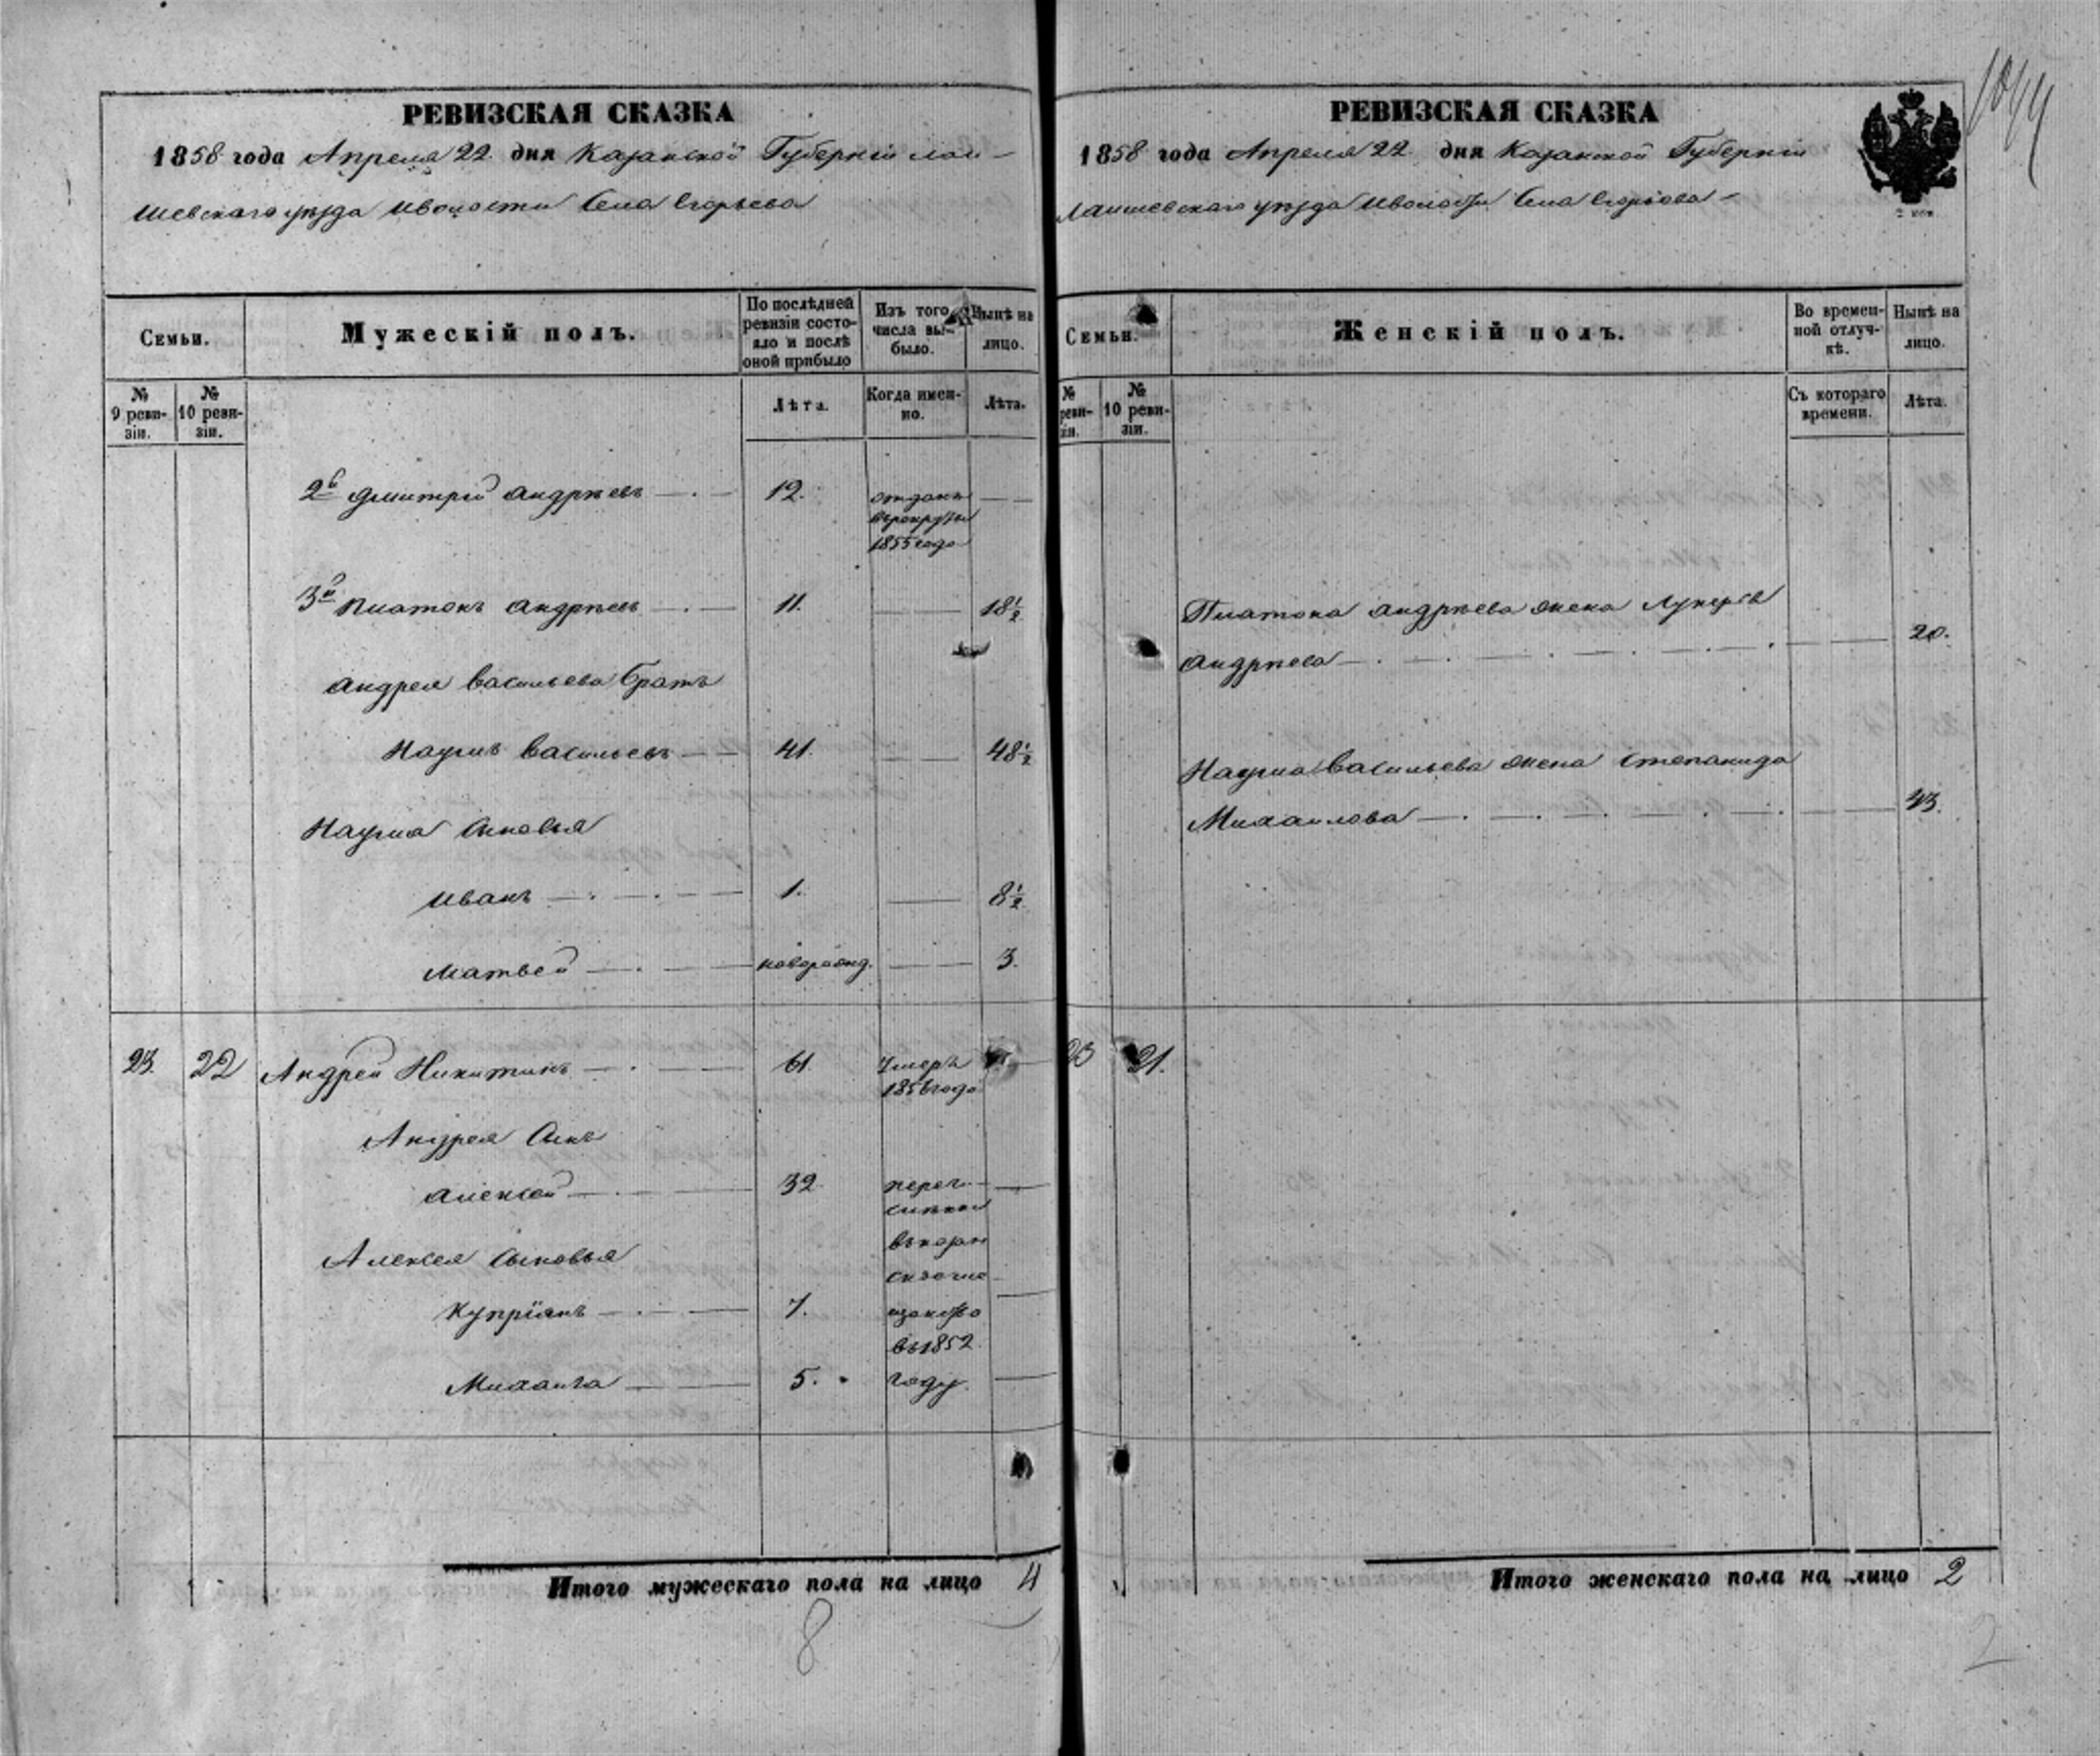 1044
РЕВИЗСКАЯ СКАЗКА
1858 года Апреля 22 дня Казанской Губерніи Лаи-
шевскаго уѣзда и волости Села Егорьева
Семьи.
Мужескій полъ.
По послѣдней ревизіи состо-яло и послѣ оной прибыло
Изъ того числа вы-было.
Нынѣ на лицо.
№ 9 реви-зіи.
№ 10 реви-зіи.
Лѣта.
Когда имен-но.
Лѣта.
2й Дмитрій Андрѣевъ 12. отданъ
въ рекруты
1855 года
3й Платонъ Андрѣевъ 11. 18½
Андрея Васильева братъ
Наумъ Васильевъ 41. 48½
Наума Сыновья
Иванъ 1. 8½
Матвей новорожд. 3.
23. 22 Андрей Никитинъ 61. Умеръ
1856 года
Андрея Сынъ
Алексей 32 пересе-
Алексея Сыновья
Купріянъ 7.
въ 1852
Михаила 5. году.
Итого мужескаго пола на лицо 4
8
РЕВИЗСКАЯ СКАЗКА
2 коп
1858 года Апреля 22 дня Казанской Губерніи
Лаишевскаго уѣзда и волости Села Егорьева
Семьи.
Женскій полъ.
Во времен-ной отлуч-кѣ.
Нынѣ на лицо.
№ реви-зіи.
№ 10 реви-зіи.
Съ котораго времени.
Лѣта.
Платона Андрѣева жена Лукерья
Андрѣева 20.
Наума Васильева жена Степанида
Михаилова 43.
23 21.
Итого женскаго пола на лицо 2
2